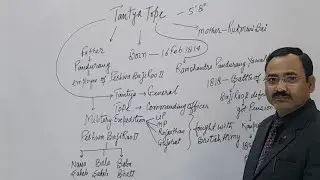 Tantya Tope - 5'8"
Father
Born - 16 Feb 1814
mother - Rukma Bai
Pandurang
employee of Peshwa Baji Rao II
Ramchandra Pandurang Yawal
Tantya → General
1818 - Battle of
Tope → Commanding officer
Baji Rao
got Pension
Military Expedition
UP
MP
Rajasthan
Gujarat
fought with
British Army
Peshwa Baji Rao II
Nana
Saheb
Bala
Sahib
Baba
Bhatt